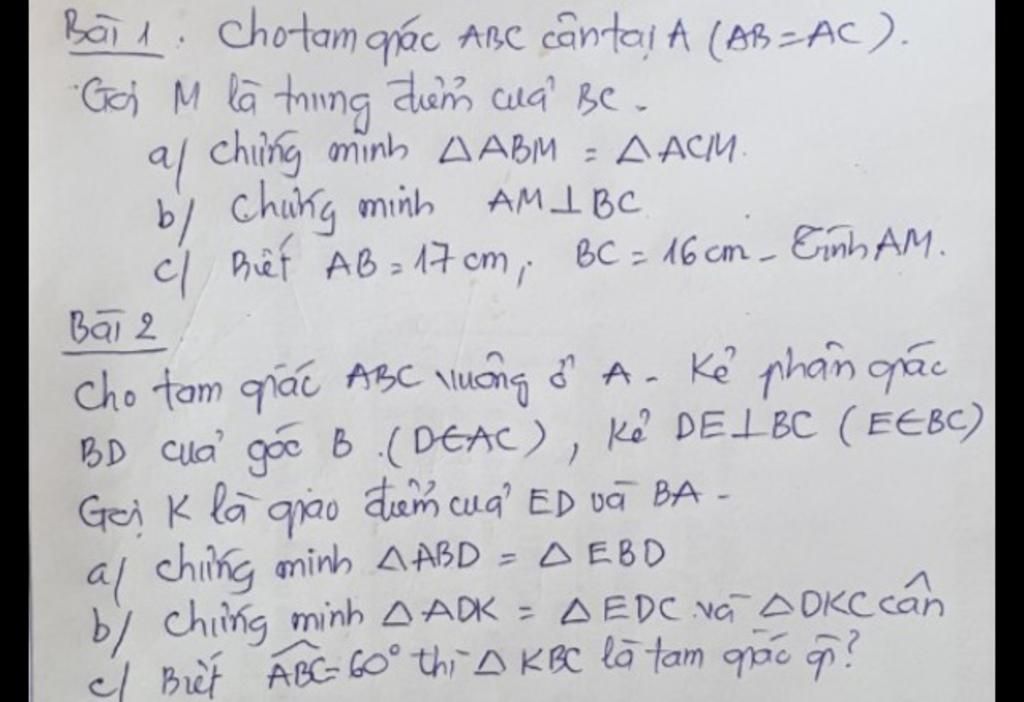 Bài 1. Cho tam giác ABC cân tại A (AB = AC).
Gọi M là trung điểm của BC.
a/ Chứng minh △ABM = △ACM.
b/ Chứng minh AM ⊥ BC
c/ Biết AB = 17 cm, BC = 16 cm. Tính AM.
Bài 2
Cho tam giác ABC vuông ở A. Kẻ phân giác
BD của góc B (D∈AC), Kẻ DE⊥BC (E∈BC)
Gọi K là giao điểm của ED và BA.
a/ Chứng minh △ABD = △EBD
b/ Chứng minh △ADK = △EDC và △DKC cân
c/ Biết \widehat{ABC} = 60° thì △KBC là tam giác gì?